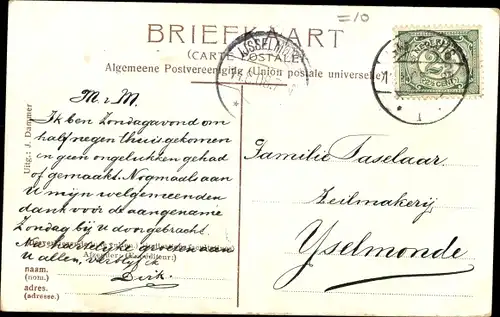 =10
BRIEFKAART
(CARTE POSTALE)
Algemeene Postvereeniging (Union postale universelle)
IJSSELMO
2½
Uitg.: J. Dammer
M. & M.
Ik ben Zondagavond om
half negen thuis gekomen
en geen ongelukken gehad
of gemaakt. Nogmaals aan
U mijn welgemeenden
dank voor de aangename
Zondag bij U doorgebracht.
Na hartelijke groeten aan
U allen, verblijf ik
Dirk.
Afzender: (Expéditeur:)
naam.
(nom.)
adres.
(adresse.)
Familie Taselaar.
Zeilmakerij
Yselmonde